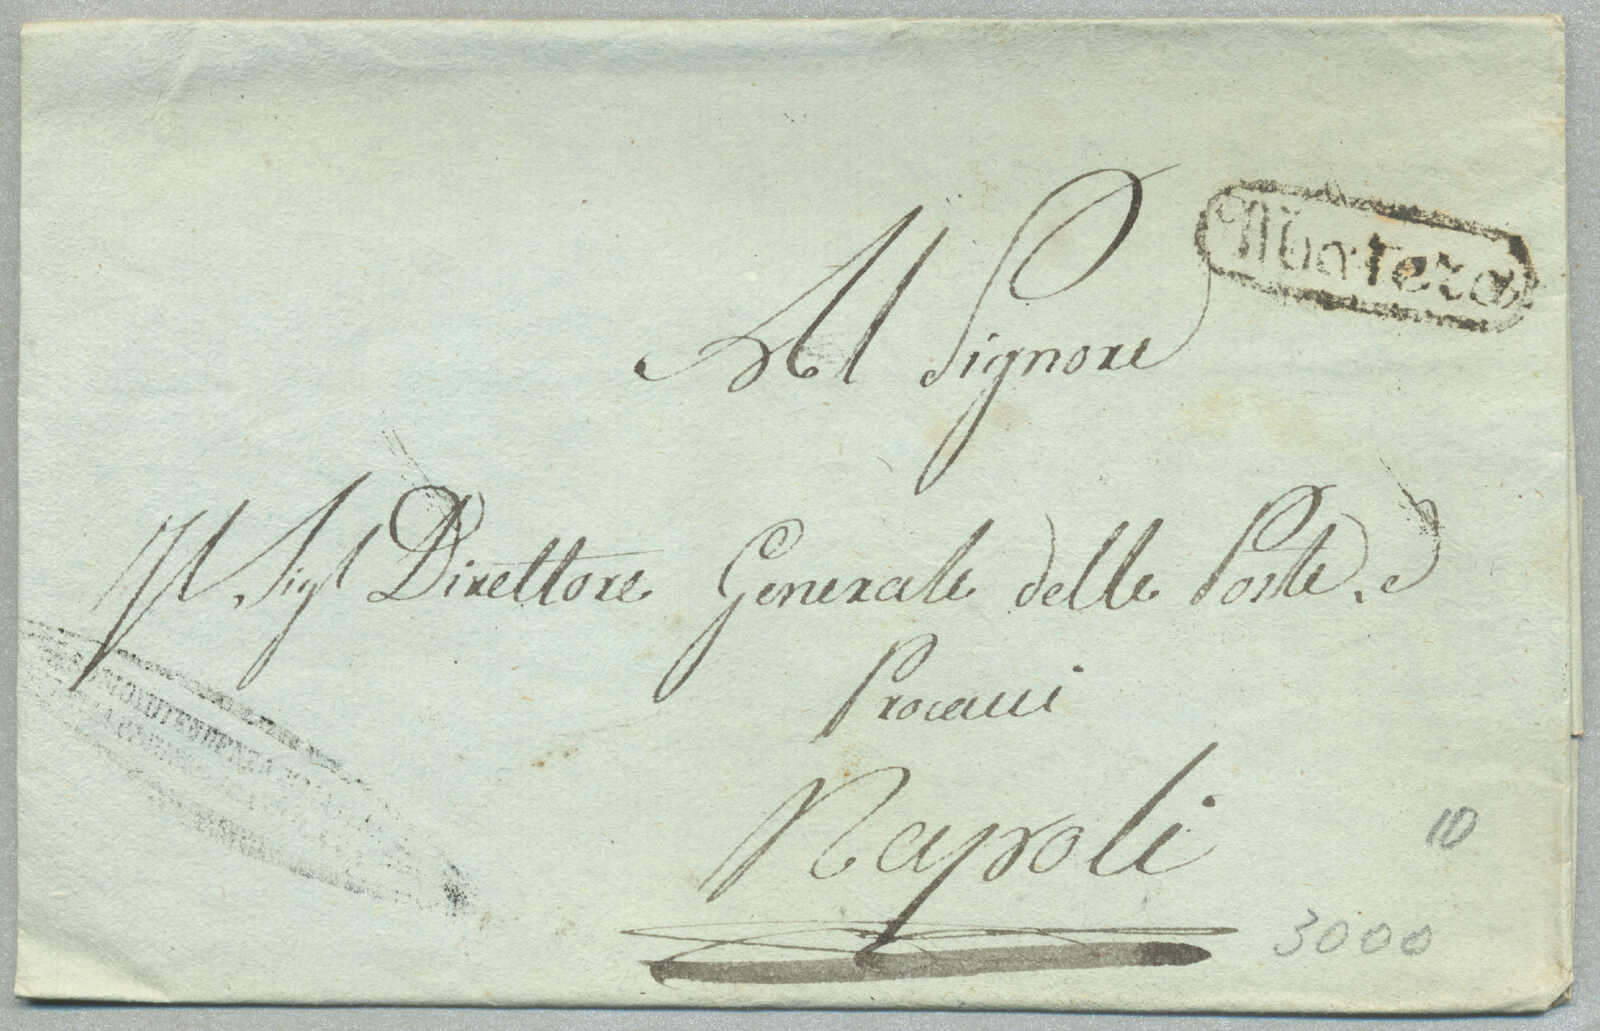 Matera
Al Signore
Il Sigr Direttore Generale delle Poste, e
Procacci
Napoli
10
3000